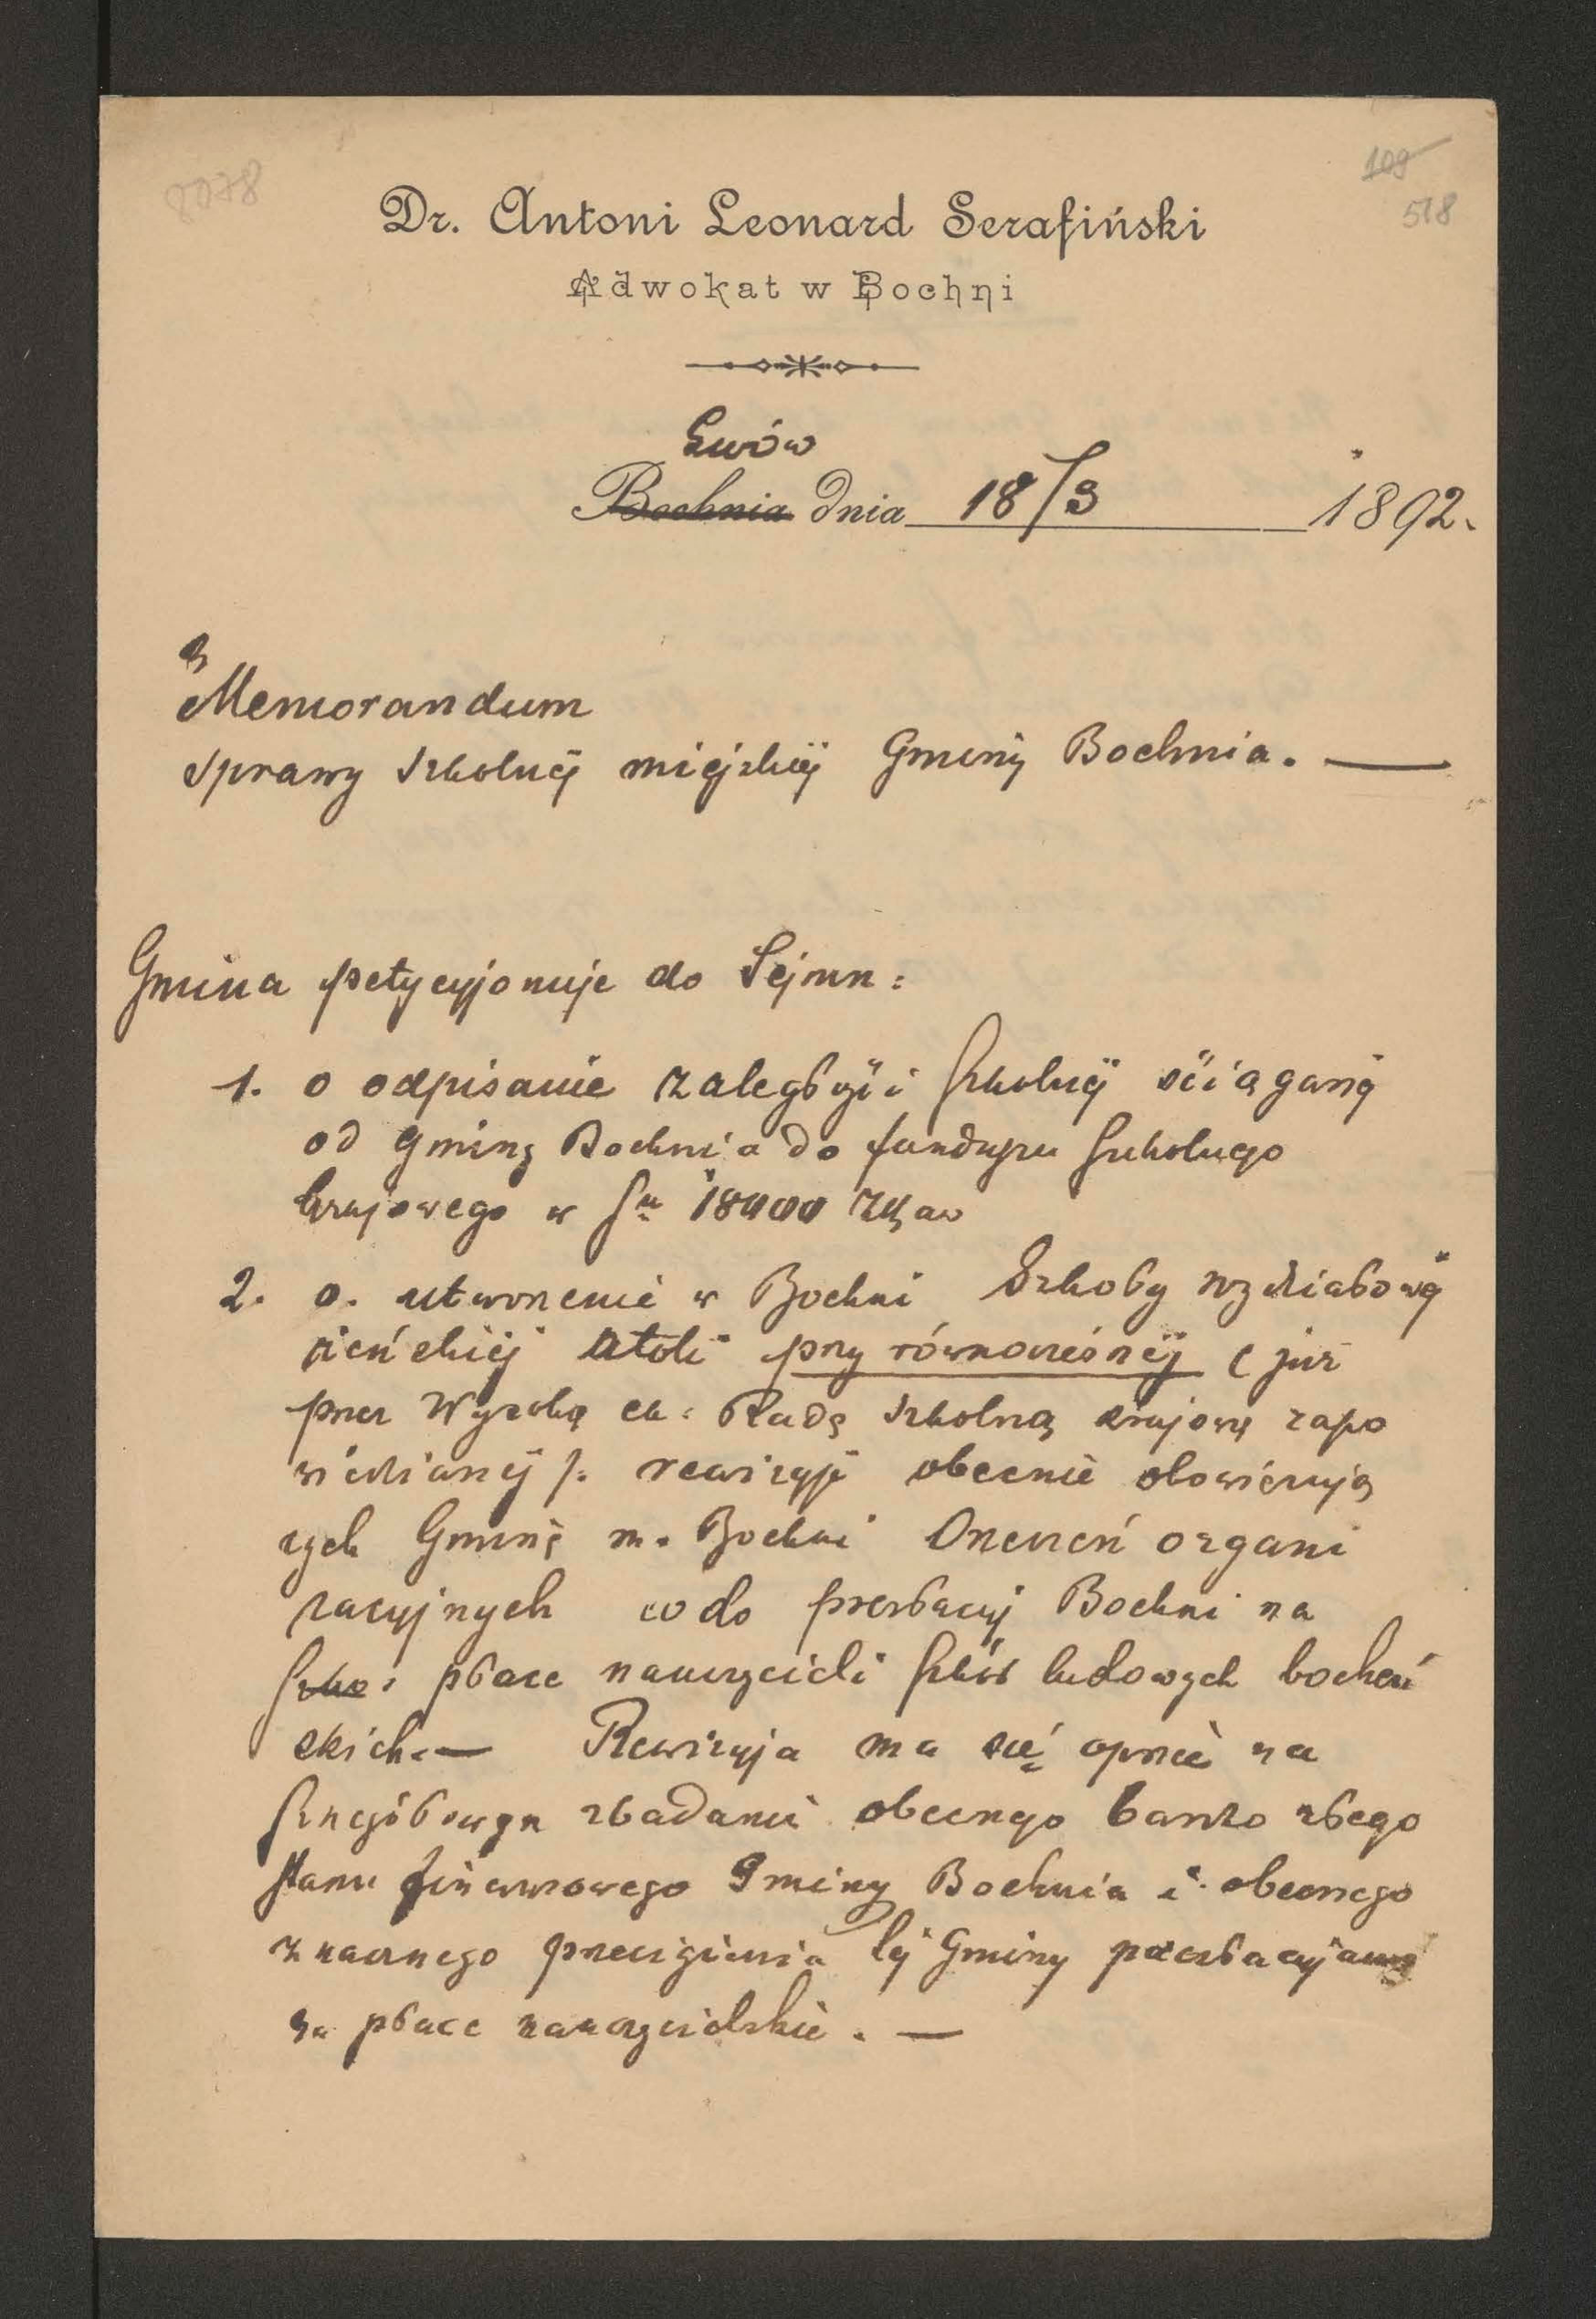 8078
109
518
Dr. Antoni Leonard Serafiński
Adwokat w Bochni
Lwów
Bochnia dnia 18/3 1892.
Memorandum
sprawy szkolnéj miéjskiéj Gminy Bochnia. —
Gmina petycyjonuje do Sejmu:
1. o odpisanie zaległości szkolnéj ściąganéj
od gminy Bochnia do funduszu szkolnego
krajowego w 18000 złr aw
2. o. utworzenie w Bochni Szkoły wydziałowéj
żeńskiéj atoli przy równoczesnéj (już
przez Wysoką ck: Radę szkolną krajową zapo
wiedzianéj): rewizyji obecnie obowięzują
cych Gminę m. Bochni Orzeczeń organi
zacyjnych co do prestacyj Bochni na
szko: płace nauczycieli szkół ludowych bocheń
skich. — Rewizyja ma się oprzeć na
szczegółowym zbadaniu obecnego bardzo złego
stanu finansowego Gminy Bochnia i obecnego
znacznego przeciążenia téj Gminy prestacyjami
na płace nauczycielskie. —